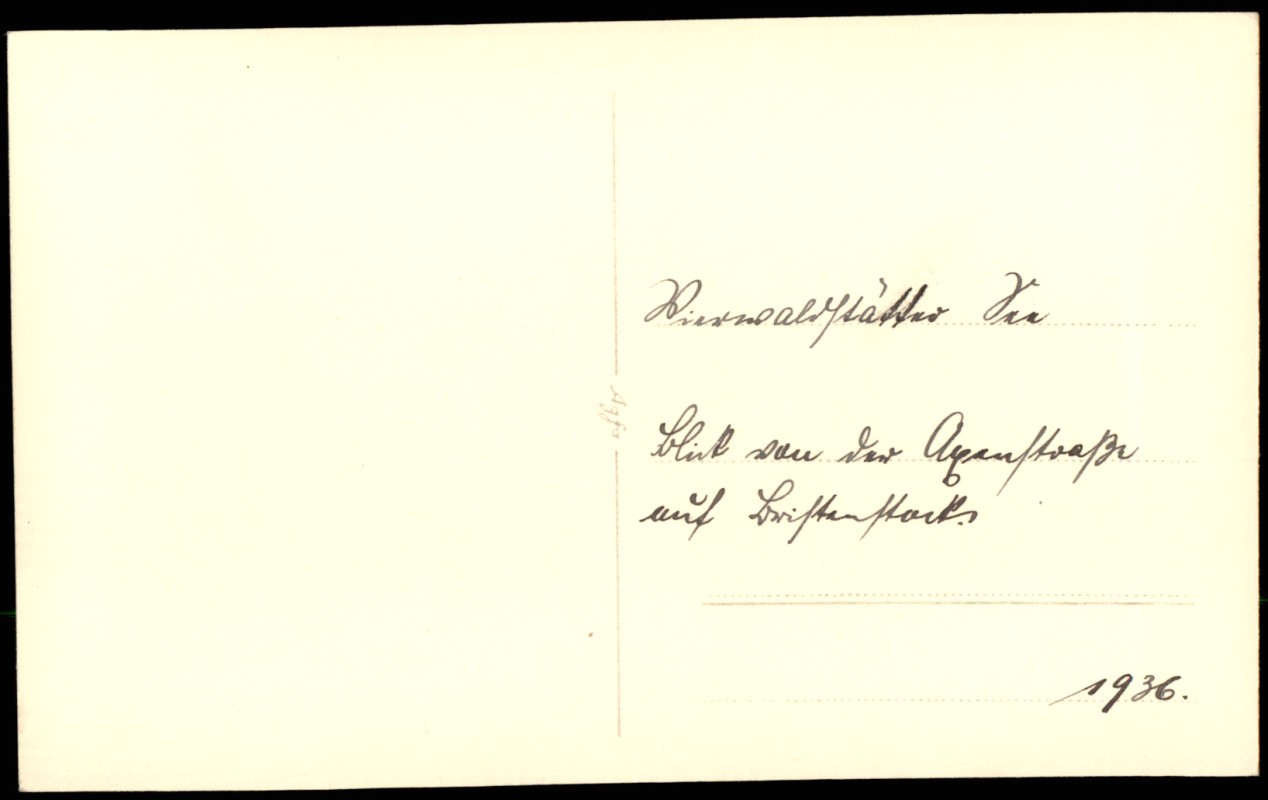 Vierwaldstätter See
Blick von der Axenstraße
auf Bristenstock.
1936.
Agfa